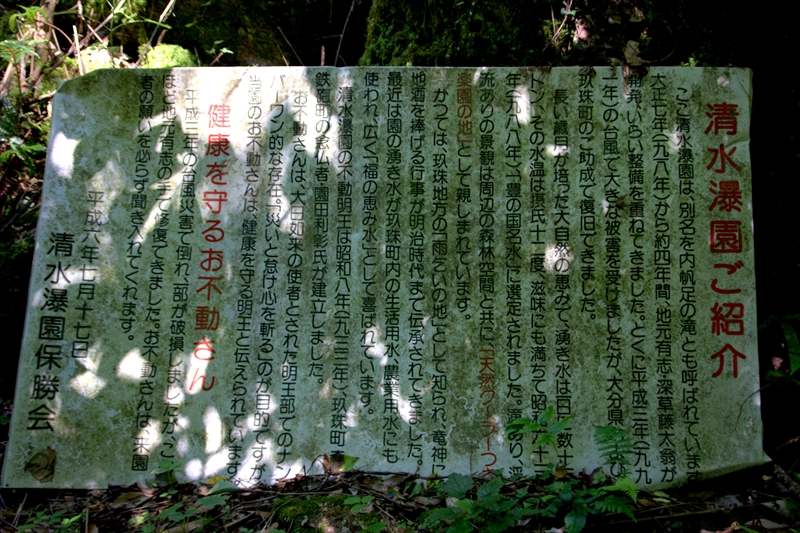 清水瀑園ご紹介
ここ清水瀑園は、別名を内帆足の滝とも呼ばれています
大正七年(一九一八年)から約四年間、地元有志・深草藤太翁が
開発いらい整備を重ねてきました。とくに平成三年(一九九
一年)の台風で大きな被害を受けましたが、大分県および
玖珠町のご助成で復旧できました。
長い歳月が培った大自然の恵みで、湧き水は一日、数十
トン、その水温は摂氏十二度、滋味にも満ちて昭和六十三
年(一九八八年)「豊の国名水」に選定されました。滝あり、渓
流ありの景観は周辺の森林空間と共に、「天然クーラーつき
楽園の地」として親しまれています。
かつては、玖珠地方の「雨乞いの地」として知られ、竜神に
地酒を捧げる行事が明治時代まで伝承されてきました。
最近は園の湧き水が玖珠町内の生活用水、農業用水にも
使われ、広く「福の恵み水」として喜ばれています。
清水瀑園の不動明王は昭和八年(一九三三年)、玖珠町
鉄砲町の念仏者、園田利彰氏が建立しました。
お不動さんは、大日如来の使者とされた明王部でのナン
バーワン的な存在。「災いと怠け心を斬る」のが目的ですが、
当園のお不動さんは、健康を守る明王と伝えられています。
健康を守るお不動さん
平成三年の台風災害で倒れ、一部が破損しましたが、こ
ほど地元有志の手で修復できました。お不動さんは、来園
者の願いを必らず聞き入れてくれます。
平成六年七月十七日
清水瀑園保勝会